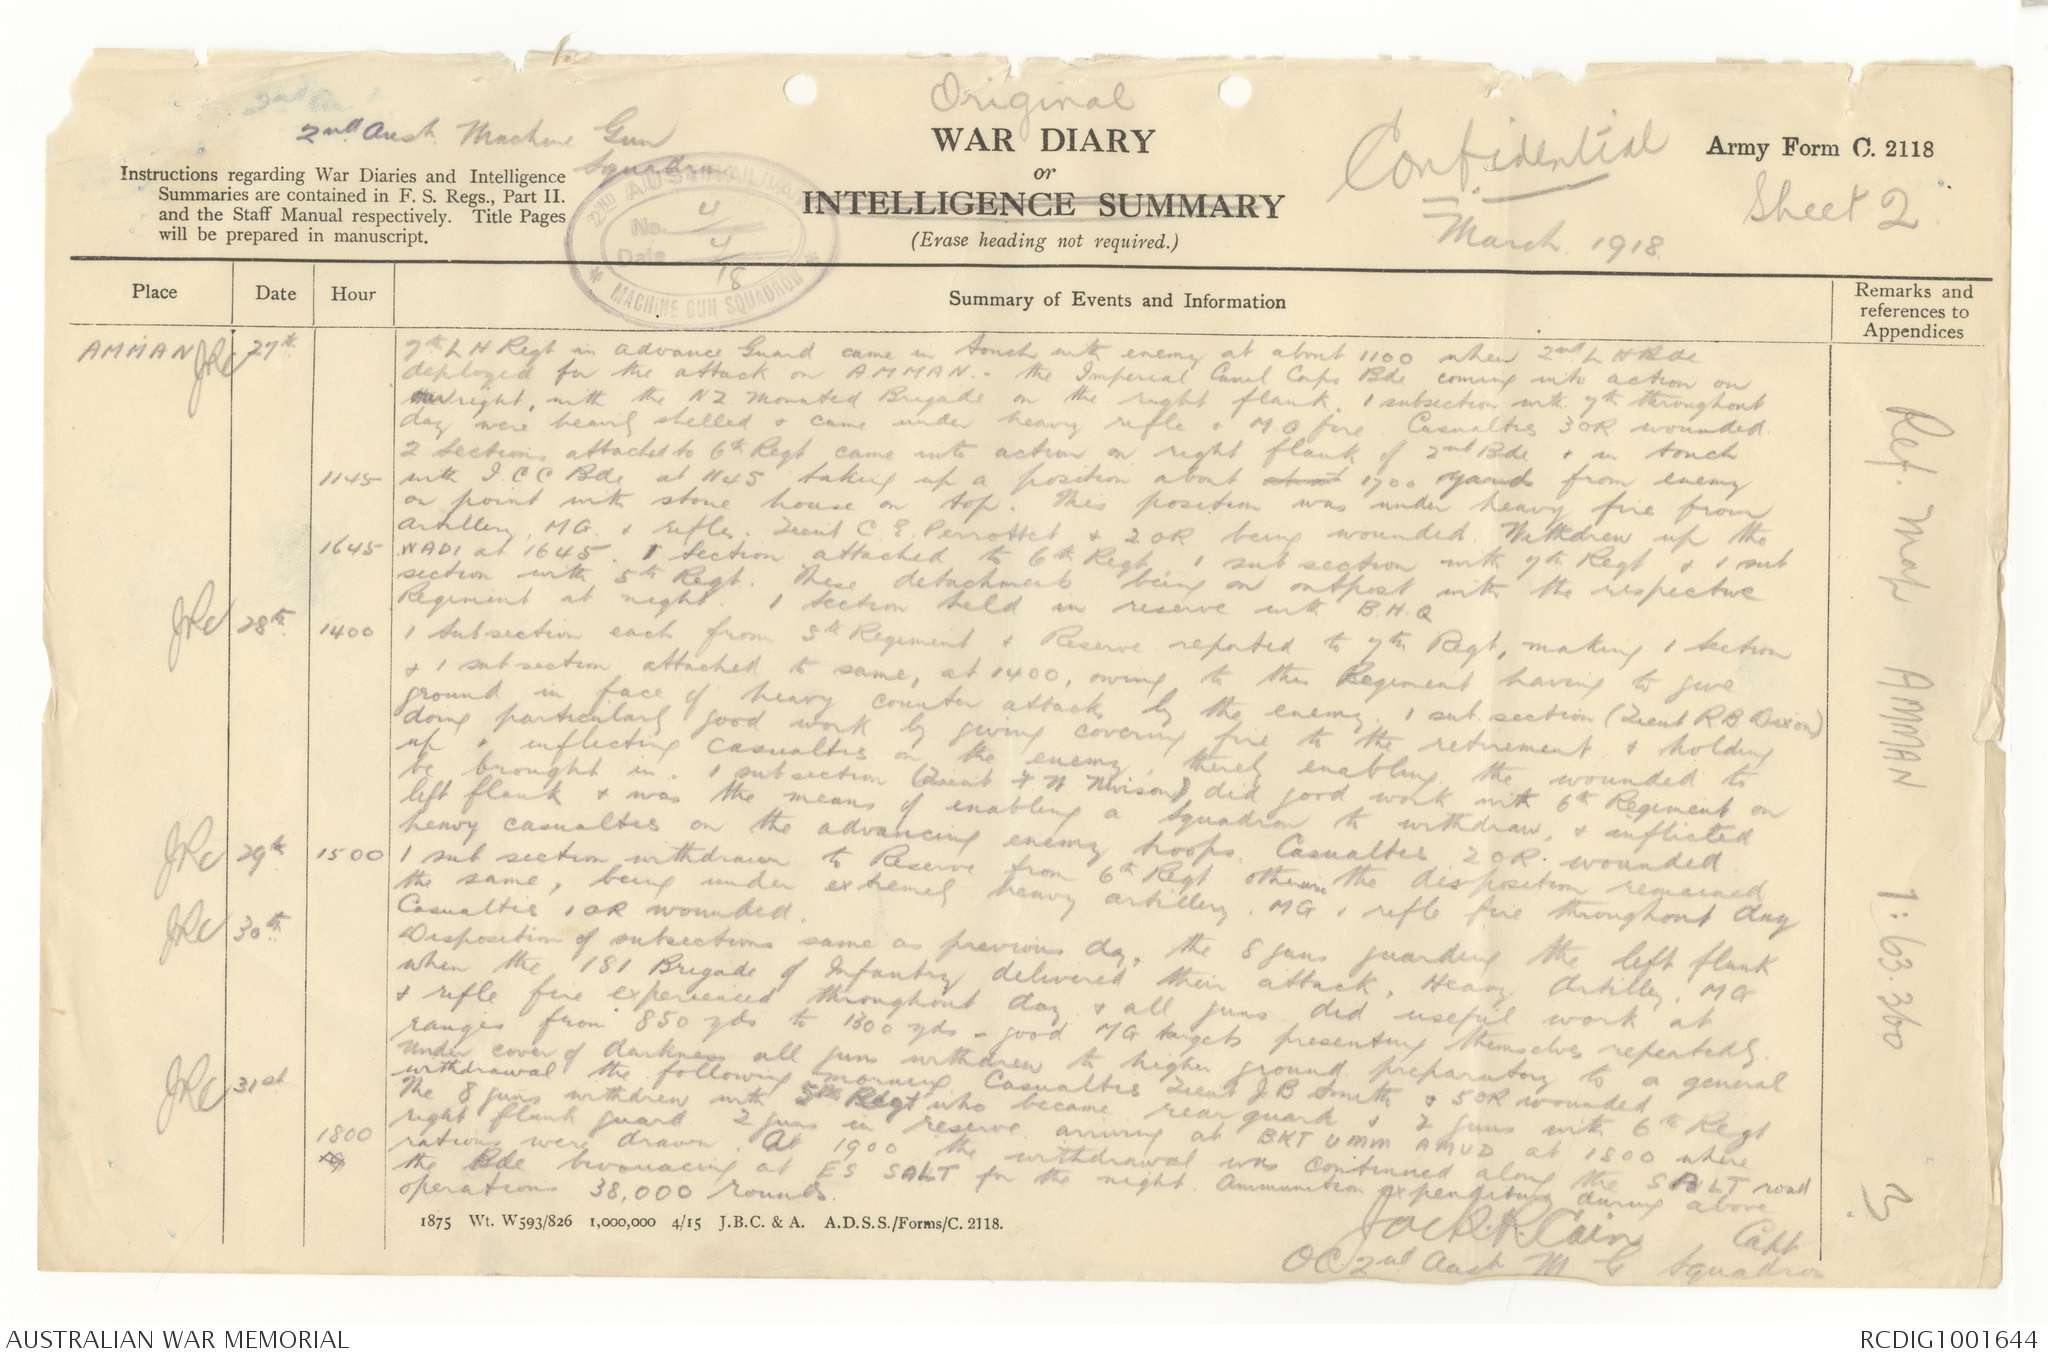 Original
2nd Aust. Machine Gun
Squadron
WAR DIARY
or
INTELLIGENCE SUMMARY
(Erase heading not required.)
Confidential
March 1918
Army Form C. 2118
Sheet 2
Instructions regarding War Diaries and Intelligence
Summaries are contained in F. S. Regs., Part II.
and the Staff Manual respectively. Title Pages
will be prepared in manuscript.
2ND AUSTRALIAN
No. 4
Date 4/18
* MACHINE GUN SQUADRON *
Place
Date
Hour
Summary of Events and Information
Remarks and
references to
Appendices
AMMAN JRC 27th 7th L H Regt in advance Guard came in touch with enemy at about 1100 when 2nd L H Bde
deployed for the attack on AMMAN.- the Imperial Camel Corps Bde coming into action on
right, with the NZ Mounted Brigade on the right flank. 1 subsection with 7th throughout
day were heavily shelled & came under heavy rifle & M.G fire. Casualties 3 OR wounded.
2 Sections attached to 6th Regt came into action on right flank of 2nd Bde & in touch
1145 with I.C C Bde at 1145 taking up a position about 1700 yards from enemy
on point with stone house on top. This position was under heavy fire from
Artillery, MG. & rifles. Lieut C. E. Perrottet & 2 OR being wounded. Withdrew up the
1645 WADI at 1645. 1 Section attached to 6th Regt 1 sub section with 7th Regt & 1 sub
section with 5th Regt. These detachments being on outpost with the respective
Regiment at night. 1 Section held in reserve with B.H.Q
JRC 28th 1400 1 Subsection each from 5th Regiment & Reserve reported to 7th Regt, making 1 Section
& 1 sub section attached to same, at 1400, owing to this Regiment having to give
ground in face of heavy counter attacks by the enemy. 1 sub. section (Lieut R B Dixon)
doing particularly good work by giving covering fire to the retirement & holding
up & inflicting casualties on the enemy, thereby enabling the wounded to
be brought in. 1 subsection (Lieut F W Nivison) did good work with 6th Regiment on
left flank & was the means of enabling a Squadron to withdraw, & inflicted
heavy casualties on the advancing enemy troops. Casualties 2 OR. wounded.
JRC 29th 1500 1 sub section withdrawn to Reserve from 6th Regt otherwise the disposition remained
the same, being under extremely heavy artillery. MG & rifle fire throughout day
Casualties 1 OR wounded.
JRC 30th Disposition of subsections same as previous day, the 8 guns guarding the left flank
when the 181 Brigade of Infantry delivered their attack. Heavy Artillery, MG
& rifle fire experienced throughout day & all guns did useful work at
ranges from 850 yds to 1300 yds - good MG targets presenting themselves repeatedly.
Under cover of darkness all guns withdrew to higher ground preparatory to a general
withdrawal the following morning. Casualties Lieut J B Smith & 5 OR wounded
JRC 31st The 8 guns withdrew with 5th Regt who became rear guard & 2 guns with 6th Regt
right flank guard. 2 guns in reserve arriving at BKT UMM AMUD at 1800 where
1800 rations were drawn. At 1900 the withdrawal was continued along the SALT road
the Bde bivouacing at ES SALT for the night. Ammunition expenditure during above
operations 38,000 rounds.
Jack R. Cain Capt
OC. 2nd Aust M G Squadron
Ref. Map AMMAN 1:63.360
3.
1875 Wt. W593/826 1,000,000 4/15 J.B.C. & A. A.D.S.S./Forms/C. 2118.
AUSTRALIAN WAR MEMORIAL
RCDIG1001644